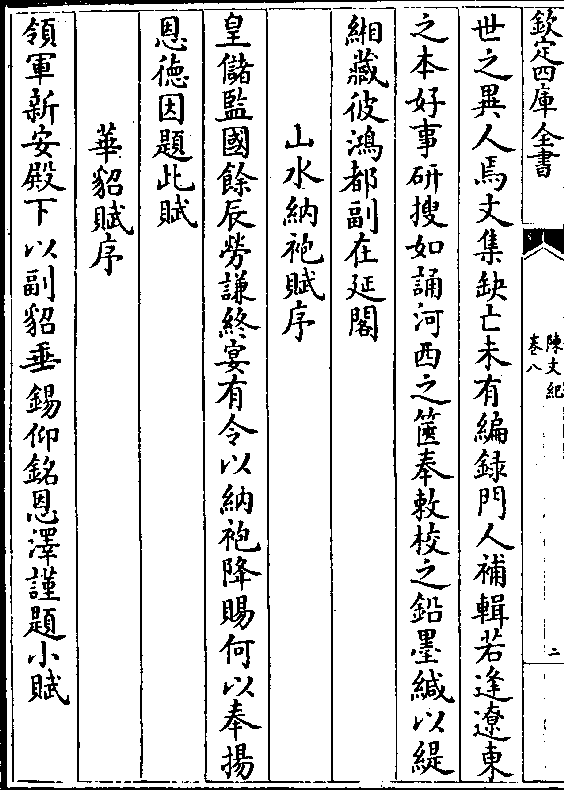 欽定四庫全書
陳文紀
卷八
二
世之異人焉文集缺亡未有編録門人補輯若逢遼東
之本好事研搜如誦河西之篋奉敕校之鉛墨緘以緹
緗藏彼鴻都副在延閣
山水納袍賦序
皇儲監國餘辰勞謙終宴有令以納袍降賜何以奉揚
恩徳因題此賦
華貂賦序
領軍新安殿下以副貂垂錫仰銘恩澤謹題小賦